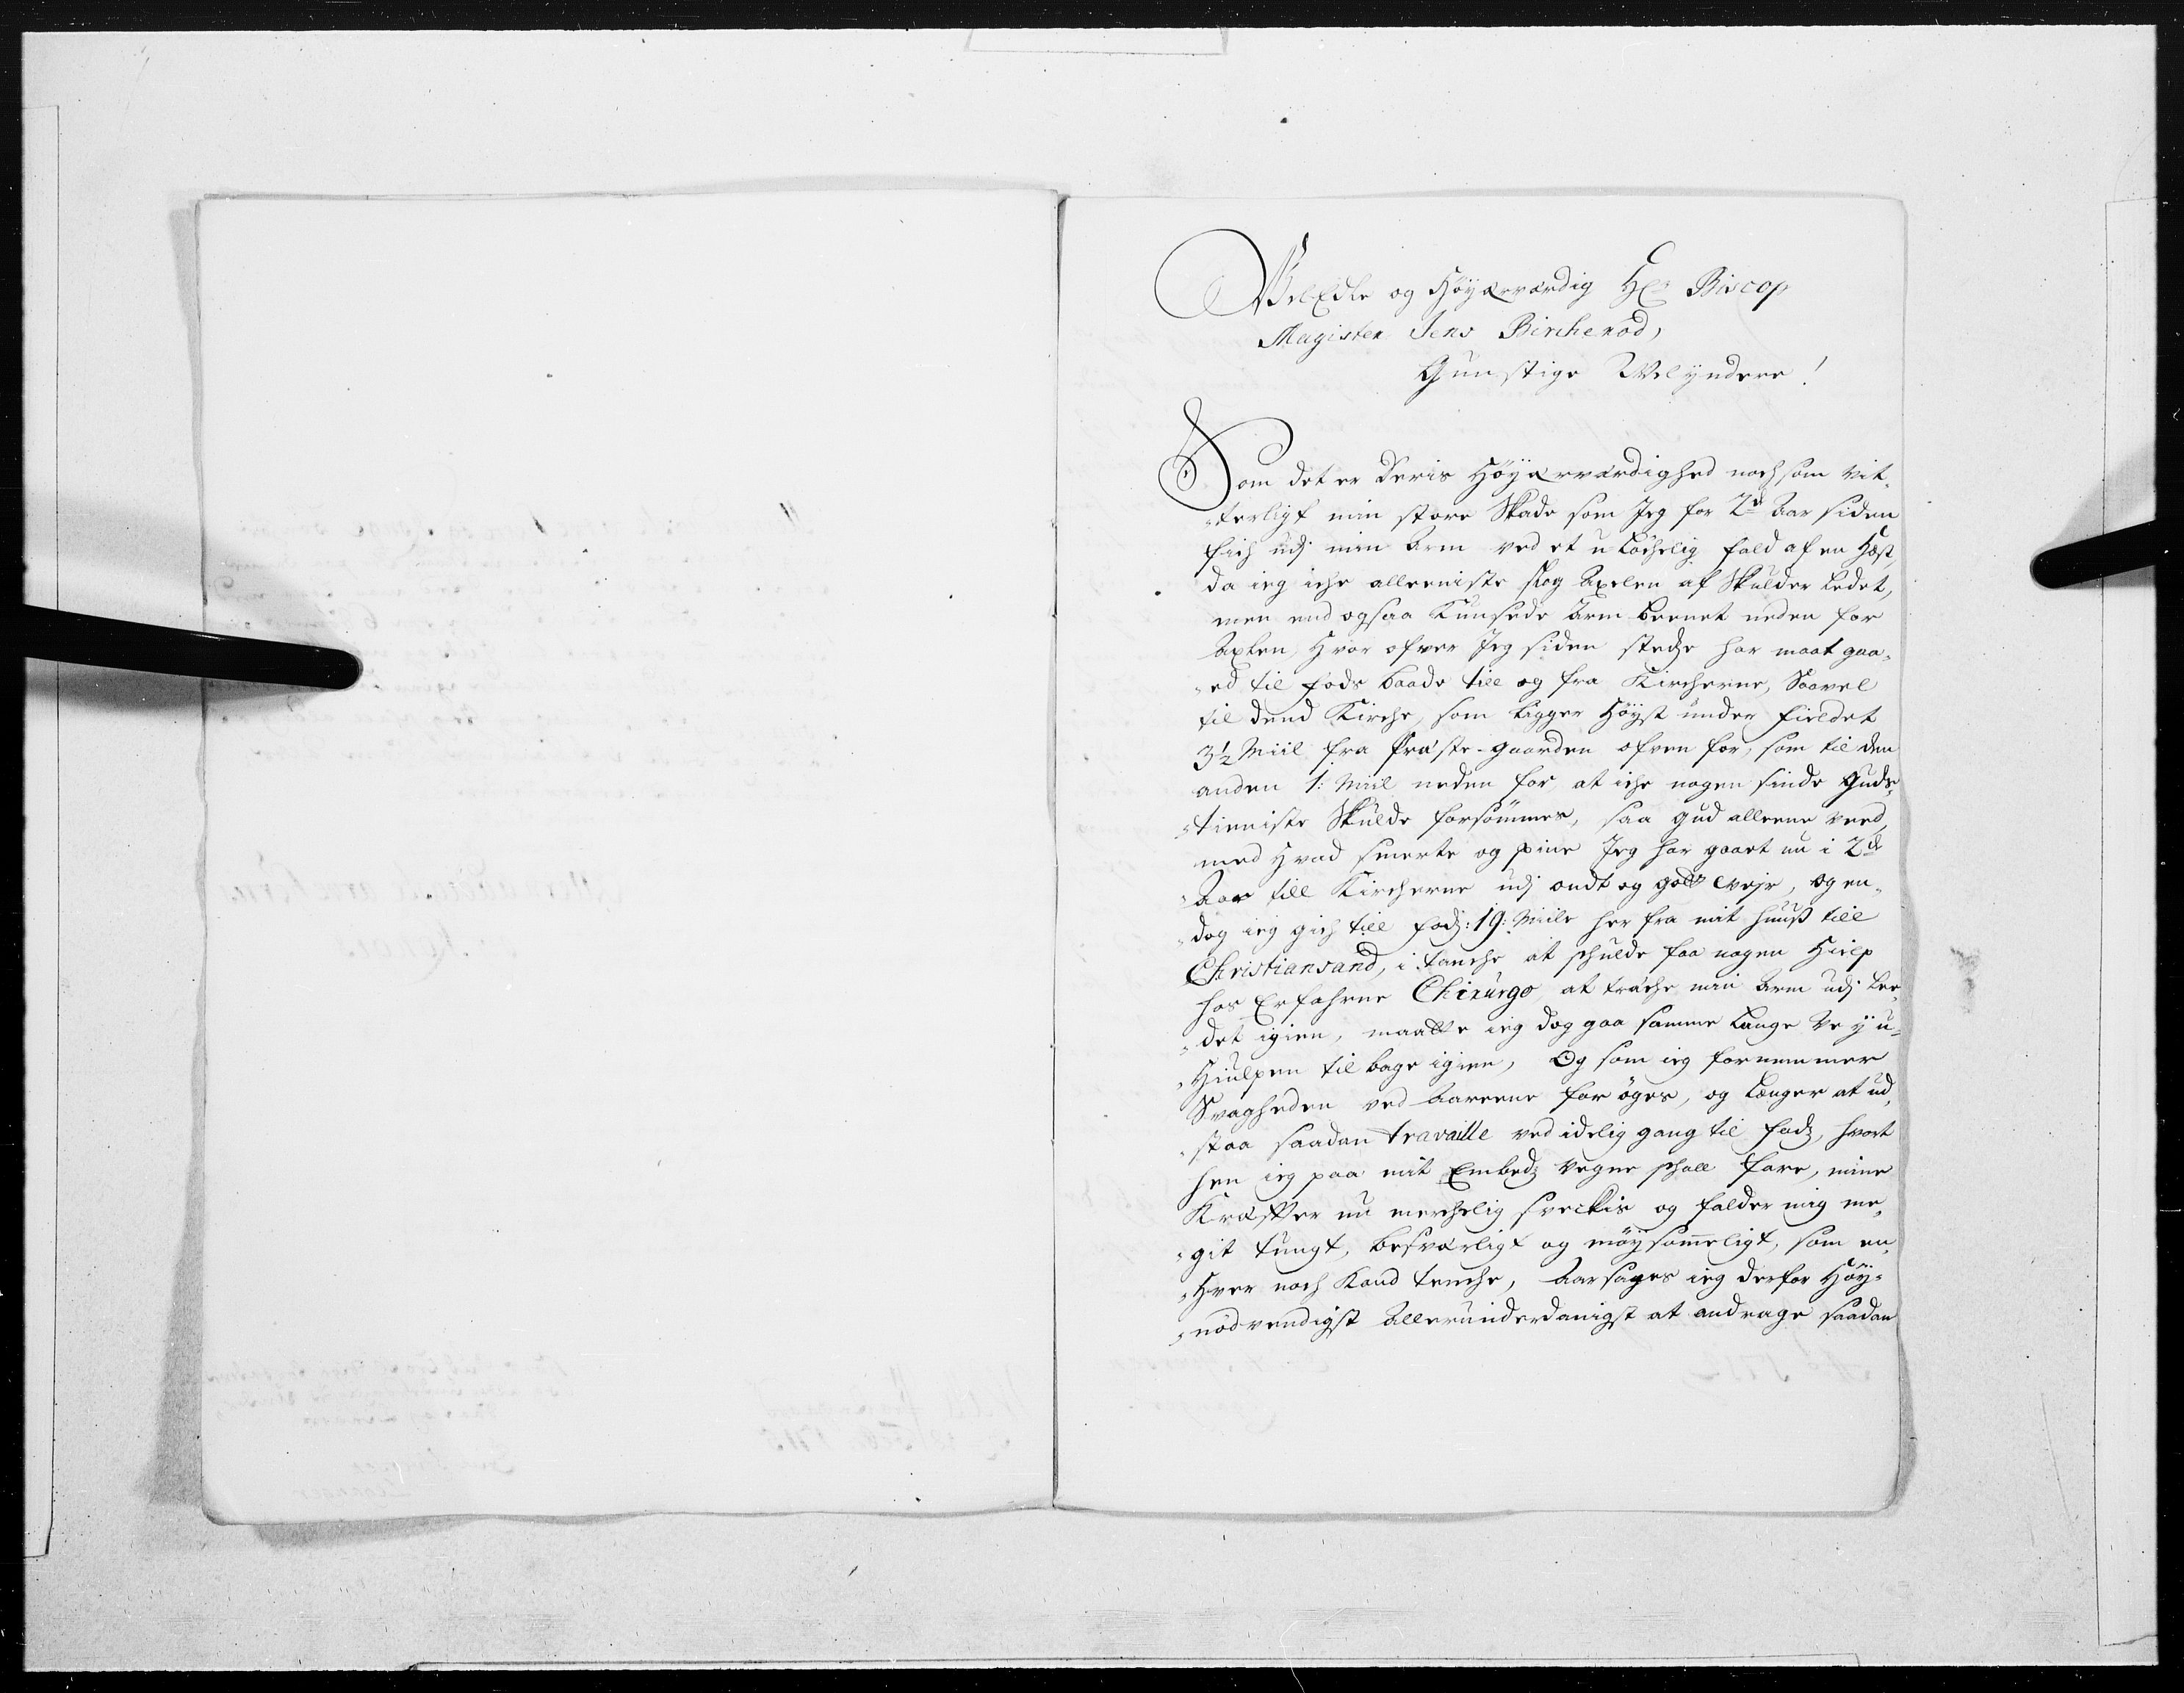 Velædle og Höyærværdig Hr. Biscop
Magister Jens Bircherod,
Gunstige Velÿndere!
Som det er Deris Höyærværdighed noch som vit„
„terligt min store Skade som Jeg for 2de Aar siden
fich udj min Arm ved et u löchelig fald af en Hæst,
da ieg iche alleeniste slog Axelen af Skulder ledet,
men end ogsaa Kunsede Arm beenet neden for
Axlen, Hvor ofver Jeg siden stedse har maat gaa„
„ed til fods baade till og fra Kircherne, Saavel
til dend Kirche, som ligger Höyst under fieldet
3½ Miil fra Præste-gaarden ofven for, som til den
anden 1: Miil neden for, at iche nogen sinde Guds„
„tienniste Skulde forsömmes, saa Gud alleene veed,
med Hvad smerte og pine Jeg har gaaet nu i 2de
Aar till Kircherne udj ondt og godt vejr, og en„
„dog ieg gich till fods: 19: Miile her fra mit huuss till
Christiansand, i tanche at schulde faa nogen Hielp
hos Erfahrne Chirurgo at træche min Arm udj Lee„
„det igien, maatte ieg dog gaa samme lange Vey u„
„Hiulpen til bage igien, Og som ieg fornemmer
Svagheden ved Aareene forøges, og længer at ud„
„staa saadan travaille ved idelig gang til fods, hvort
hen ieg paa mit Embeds Vegne schall fare, mine
Kræffter nu merchelig sveckis og falder mig me„
„git tungt, besværligt og möysommeligt, som en„
„Hver noch Kand tenche, Aarsages ieg derfor Höy„
„nödvendigst Allerunderdanigst at andrage saadan